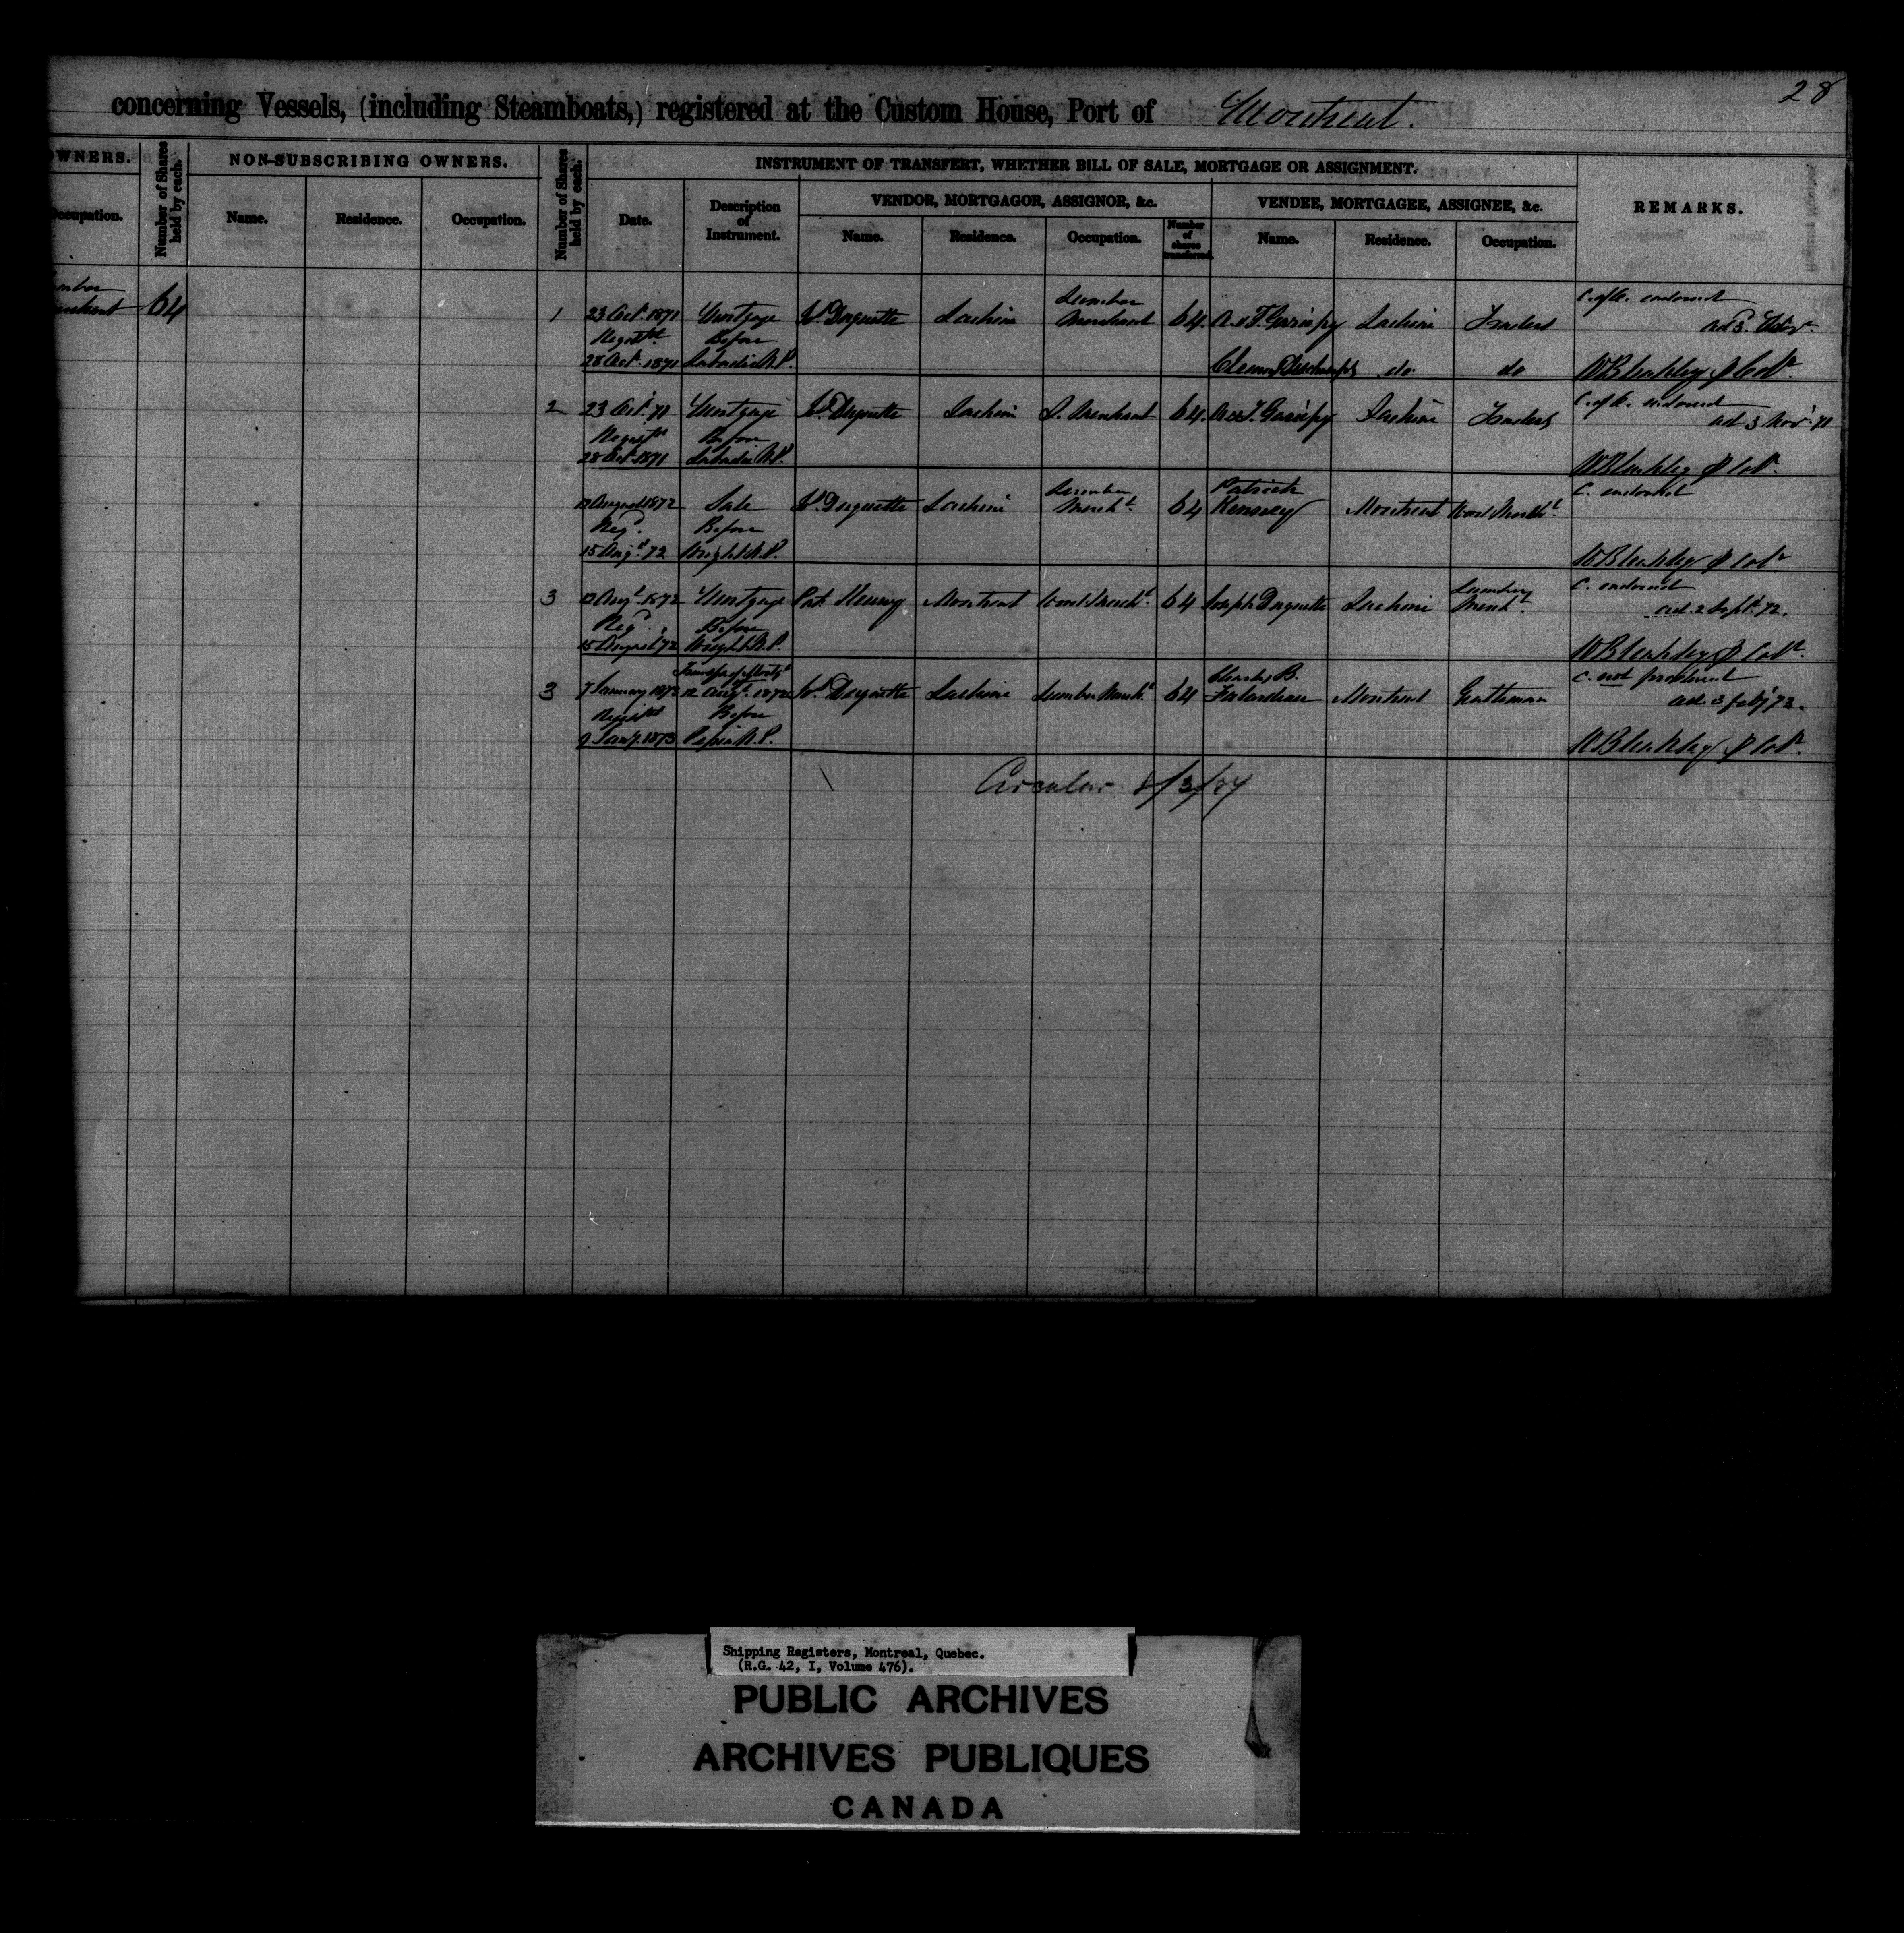 28
concerning Vessels, (including Steamboats,) registered at the Custom House, Port of Montreal.
OWNERS.
Occupation.
Number of Shares held by each.
NON-SUBSCRIBING OWNERS.
Name. Residence. Occupation.
Number of Shares held by each.
INSTRUMENT OF TRANSFERT, WHETHER BILL OF SALE, MORTGAGE OR ASSIGNMENT.
Date.
Description of Instrument.
VENDOR, MORTGAGOR, ASSIGNOR, &c.
Name. Residence. Occupation. Number of shares transferred.
VENDEE, MORTGAGEE, ASSIGNEE, &c.
Name. Residence. Occupation.
REMARKS.
64
Lumber C. of R. endorsed
1 23 Oct. 1871 Mortgage Js. Duquette Lachine Merchant 64. A. & T. Gariepy Lachine Traders
Regist'd Before
28 Oct. 1871 Labadie N.P. do do W Bleakley
C. of R. endorsed
2 23 Oct. 71 Mortgage Js. Duquette Lachine L. Merchant 64. A & T. Gariepy Lachine Traders ad 3 Nov. 71
Regist'd Before
28 Oct. 1871 Labadie N.P. W Bleakley
Lumber Patrick C. endorsed
12 August 1872 Sale Js. Duquette Lachine Merch't 64 Kenney Montreal Wood Merch't.
Reg'd. Before
15 Aug't. 72 Wright N.P. W Bleakley
Lumber C. endorsed
3 12 Aug't. 1872 Mortgage Pat. Kenney Montreal Wood Merch't. 64 Joseph Duquette Lachine Merch't ad. 2 Sept. 72.
Reg'd. Before
15 August 72 Wright N.P. W Bleakley
Transfer of Mortg. Charles B. C. not produced
3 7 January 1873 12 Aug't. 1872 Js. Duquette Lachine Lumber Merch't. 64 Falardeau Montreal Gentleman ad. 3 Feby 73.
Regist'd Before
9 Jan'y. 1873 Pepin N.P. W Bleakley
Circular 8/3/24
Shipping Registers, Montreal, Quebec.
(R.G. 42, I, Volume 476).
PUBLIC ARCHIVES
ARCHIVES PUBLIQUES
CANADA